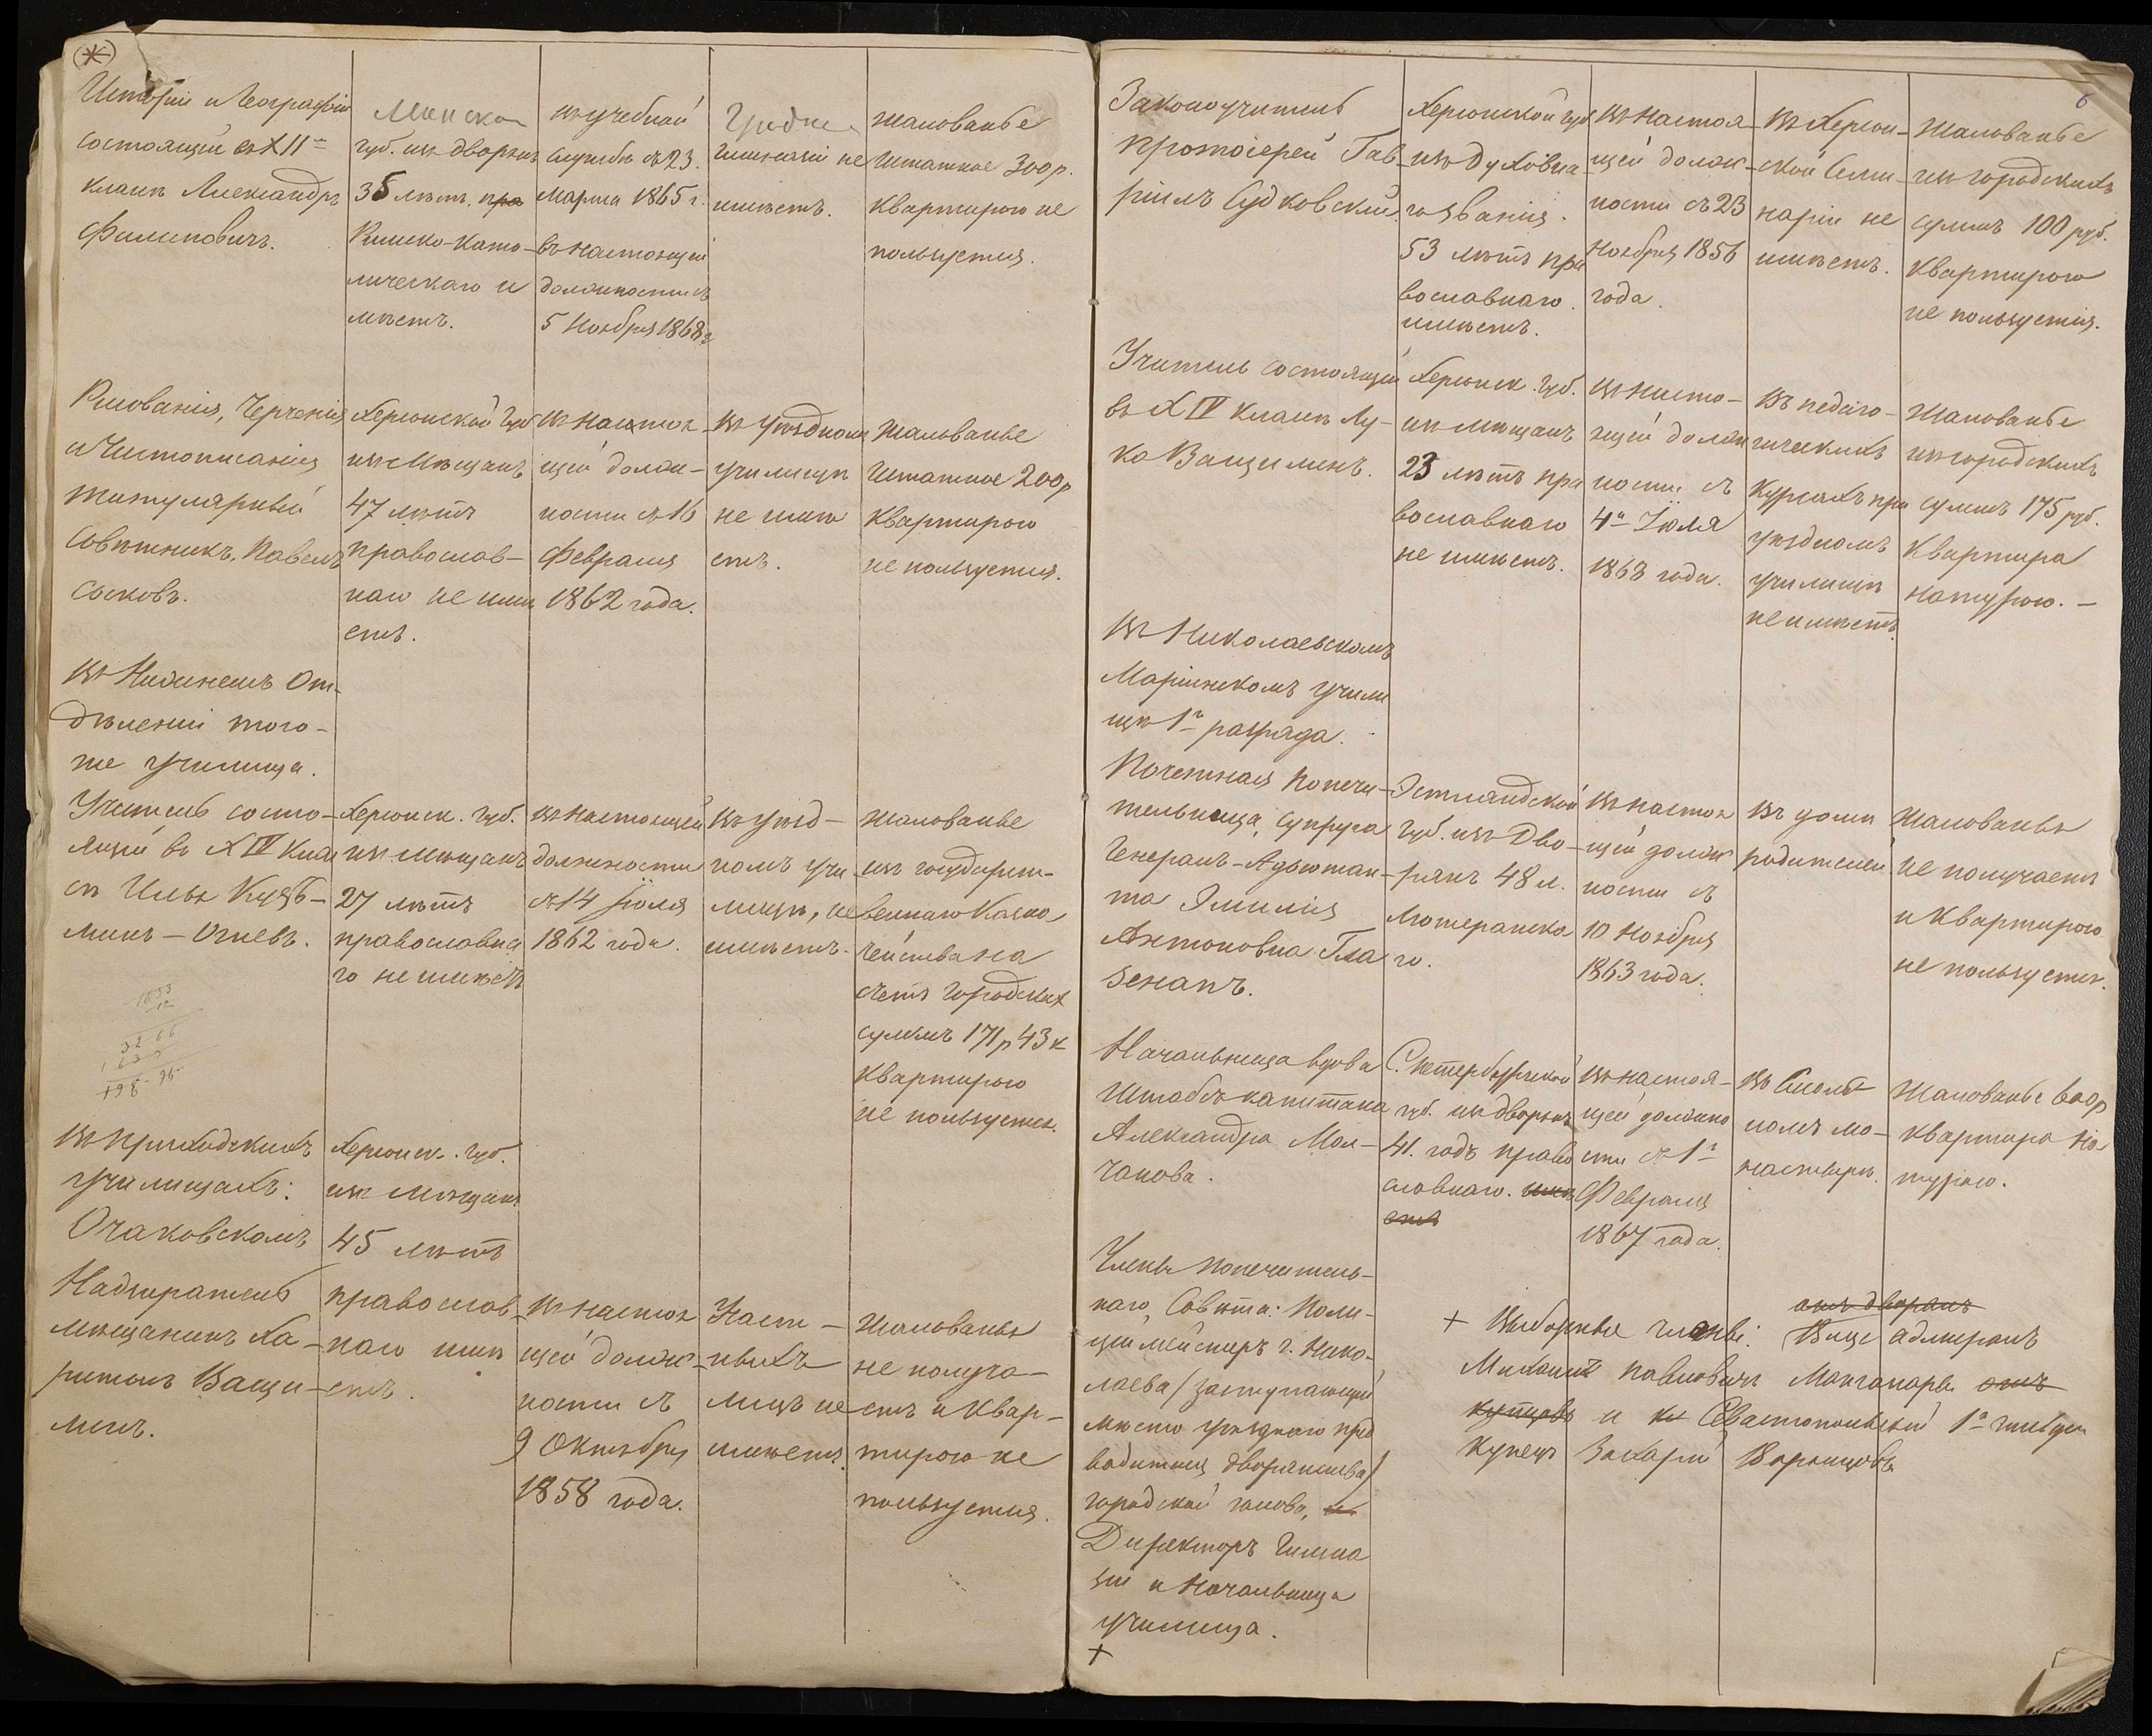 Исторіи и Географіи
состоящій въ XII м
классѣ Александръ
Филиповичъ.
Минско
губ. изъ дворянъ
35 лѣтъ. пра
Римско-като-
лическаго и
мѣетъ.
въ учебной
службѣ съ 23
Марта 1865 г.
въ настоящей
должности съ
5 Ноября 1868 г
Гродне
гимназіи не
имѣетъ.
жалованье
Штатное 300 р.
квартирою не
пользуется.
Рисованія, Черченія
и Чистописанія
титулярный
Совѣтникъ, Павелъ
Сосковъ.
Херсонской Губ
изъ Мѣщанъ
47 лѣтъ
православ-
наго не имѣ
етъ.
въ настоя-
щей долж-
ности съ 16
Февраля
1862 года.
въ Уѣздномъ
училищѣ
не имѣ
етъ.
Жалованье
Штатное 200 р
квартирою
не пользуется.
въ Нижнемъ От-
дѣленіи того-
же училища.
Учитель состо-
ящій въ XIV клас
сѣ Илья Кузь-
минъ-Огневъ.
Херсонск. Губ.
изъ мѣщанъ
27 лѣтъ
православна
го не имѣетъ
въ настоящей
должности
съ 14 Іюля
1862 года.
въ уѣзд-
номъ учи
лищѣ, не
имѣетъ.
жалованье
изъ государст-
веннаго Казна
чейства на
счетъ городских
суммъ 171 р 43 к
квартирою
не пользуется.
въ приходскихъ
училищахъ:
Очаковскомъ
Надзиратель
мѣщанинъ Ха-
ритонъ Ващи-
линъ.
Херсонск. Губ.
изъ мѣщанъ
45 лѣтъ
православ
наго имѣ
етъ.
въ настоя
щей долж-
ности съ
9 Октября
1858 года.
Част-
ныхъ
лицъ не
имѣетъ.
жалованья
не получа-
етъ и квар-
тирою не
пользуется.
6
Законоучитель
протоіерей Гав-
ріилъ Судковскій.
Херсонской губ
изъ Духовна
го званія.
53 лѣтъ пра
вославнаго.
имѣетъ.
въ настоя-
щей долж-
ности съ 23
Ноября 1856
года.
въ Херсон-
ской Семи-
наріи не
имѣетъ.
жалованье
изъ городскихъ
суммъ 100 руб.
квартирою
не пользуется.
Учитель состоящій
въ XIV классѣ Лу-
ка Ващилинъ.
Херсонск. Губ.
изъ мѣщанъ
23 лѣтъ пра
вославнаго
не имѣетъ.
въ насто-
ящей долж
ности съ
4 Іюля
1868 года.
въ педаго-
гическихъ
Курсахъ при
уѣздномъ
училищѣ
не имѣетъ.
жалованье
изъ городскихъ
суммъ 175 руб.
квартира
натурою. -
въ Николаевскомъ
Маріинскомъ Учили
щѣ 1 разряда.
Почетная Попечи-
тельница, супруга
Генералъ-Адъютан-
та Эмилія
Антоновна Гла
зенапъ.
Эстляндской
Губ. изъ Дво-
рянъ 48 л.
Лютеранска
го.
въ настоя
щей долж
ности съ
10 Ноября
1863 года.
въ домѣ
родителей
Жалованья
не получаетъ
и квартирою
не пользуется.
Начальница вдова
Штабсъ-капитана
Александра Мол-
чанова.
С. Петербургской
губ. изъ дворянъ
41. годъ право
славнаго. имѣ
етъ
въ настоя-
щей должно
сти съ 1
Февраля
1867 года.
въ Смоль
номъ мо-
настырѣ.
Жалованье 600 р
квартира на
турою.
Члены Попечитель-
наго Совѣта: Поли-
ціймейстеръ г. Нико-
лаева (заступающій
мѣсто уѣзднаго пред
водителя дворянства)
городской голова, и
Директоръ Гимна
зіи и Начальница
училища.
+
отъ дворянъ
+ Выборные члены: Вице адмиралъ
Михаилъ Павловичъ Манганари отъ
купцовъ и Севастопольскій 1 гильдіи
Купецъ Захарій